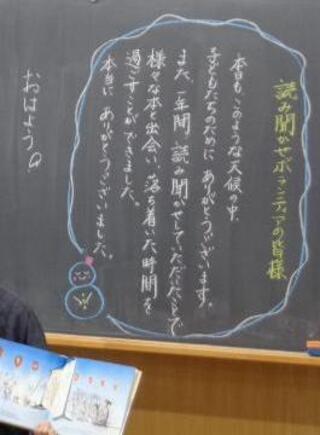 読み聞かせボランティアの皆様
本日も、このような天候の中、
子どもたちのために ありがとうございます。
また、一年間、読み聞かせしていただいたことで
様々な本と出会い、落ち着いた時間を
過ごすことができました。
本当に ありがとうございました。
おはよう